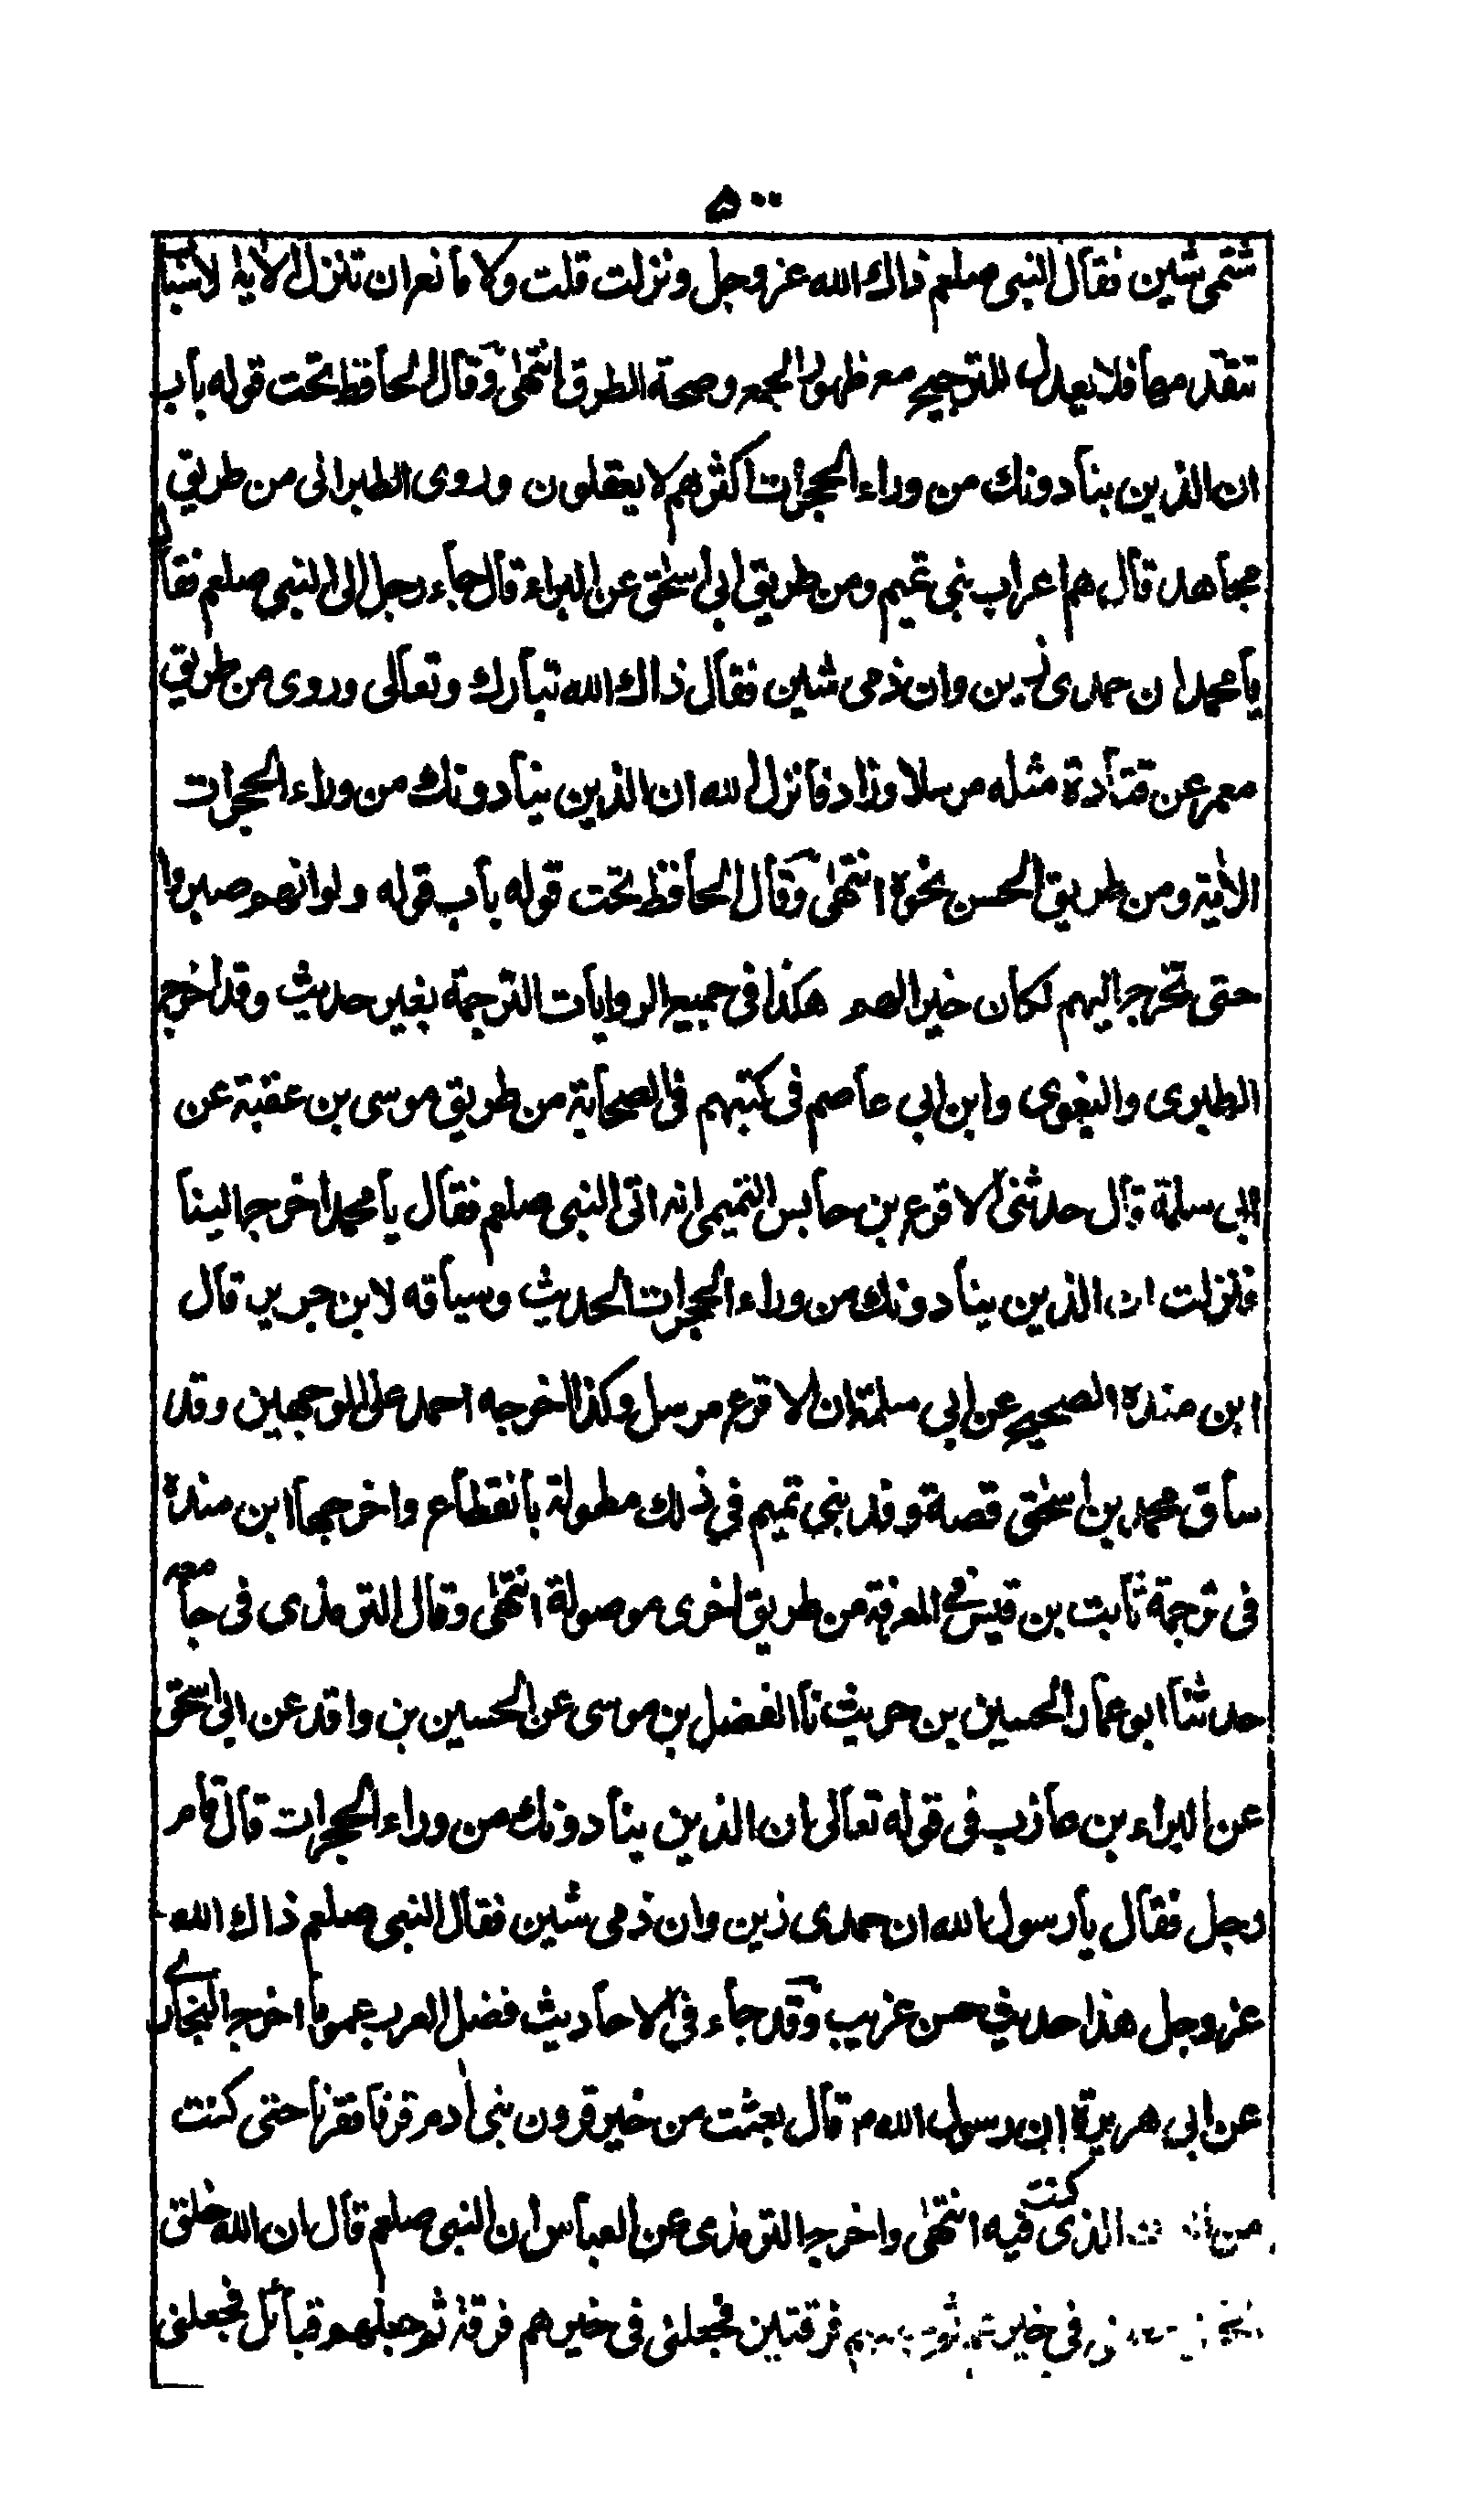 ۵۰۰
شتمى شين فقال النبى صلعم ذاك الله عز وجل ونزلت قلت ولا مانع ان تنزل الاية لاسباب
تتقدمها فلا يعدل للترجيح مع ظهور الجمع وصحة الطرق انتهى وقال الحافظ تحت قوله باب
ان الذين ينادونك من وراء الحجرات اكثرهم لا يعقلون وروى الطبرانى من طريق
مجاهد قال هم اعراب بنى تميم ومن طريق ابى اسحق عن البراء قال جاء رجل الى النبى صلعم فقال
يا محمد ان حمدى زين وان ذمى شين فقال ذاك الله تبارك وتعالى وروى من طريق
معمر عن قتادة مثله مرسلا وزاد فانزل الله ان الذين ينادونك من وراء الحجرات
الاية ومن طريق الحسن نحوه انتهى وقال الحافظ تحت قوله باب قوله ولو انهم صبروا
حتى تخرج اليهم لكان خيرا لهم هكذا فى جميع الروايات الترجمة بغير حديث وقد اخرج
الطبرى والبغوى وابن ابى عاصم فى كتبهم فى الصحابة من طريق موسى بن عقبة عن
ابى سلمة قال حدثنى الاقرع بن حابس التميمى انه اتى النبى صلعم فقال يا محمد اخرج الينا
فنزلت ان الذين ينادونك من وراء الحجرات الحديث وسياقه لابن جرير قال
ابن مندة الصحيح عن ابى سلمة ان الاقرع مرسل وكذا اخرجه احمد على الوجهين وقد
ساق محمد بن اسحق قصة وفد بنى تميم فى ذلك مطولة بانقطاع واخرجها ابن مندة
فى ترجمة ثابت بن قيس فى المعرفة من طريق اخرى موصولة انتهى وقال الترمذى فى جامعه
حدثنا ابو عمار الحسين بن حريث نا الفضل بن موسى عن الحسين بن واقد عن ابى اسحق
عن البراء بن عازب فى قوله تعالى ان الذين ينادونك من وراء الحجرات قال قام
رجل فقال يا رسول الله ان حمدى زين وان ذمى شين فقال النبى صلعم ذاك الله
عز وجل هذا حديث حسن غريب وقد جاء فى الاحاديث فضل العرب عموما اخرج البخارى
عن ابى هريرة ان رسول الله م قال بعثت من خير قرون بنى ادم قرنا فقرنا حتى كنت
من الذى كنت فيه انتهى واخرج الترمذى عن العباس ان النبى صلعم قال ان الله خلق
فى خير فرقتين فجعلنى فى خيرهم فرقة ثم جعلهم قبائل فجعلنى